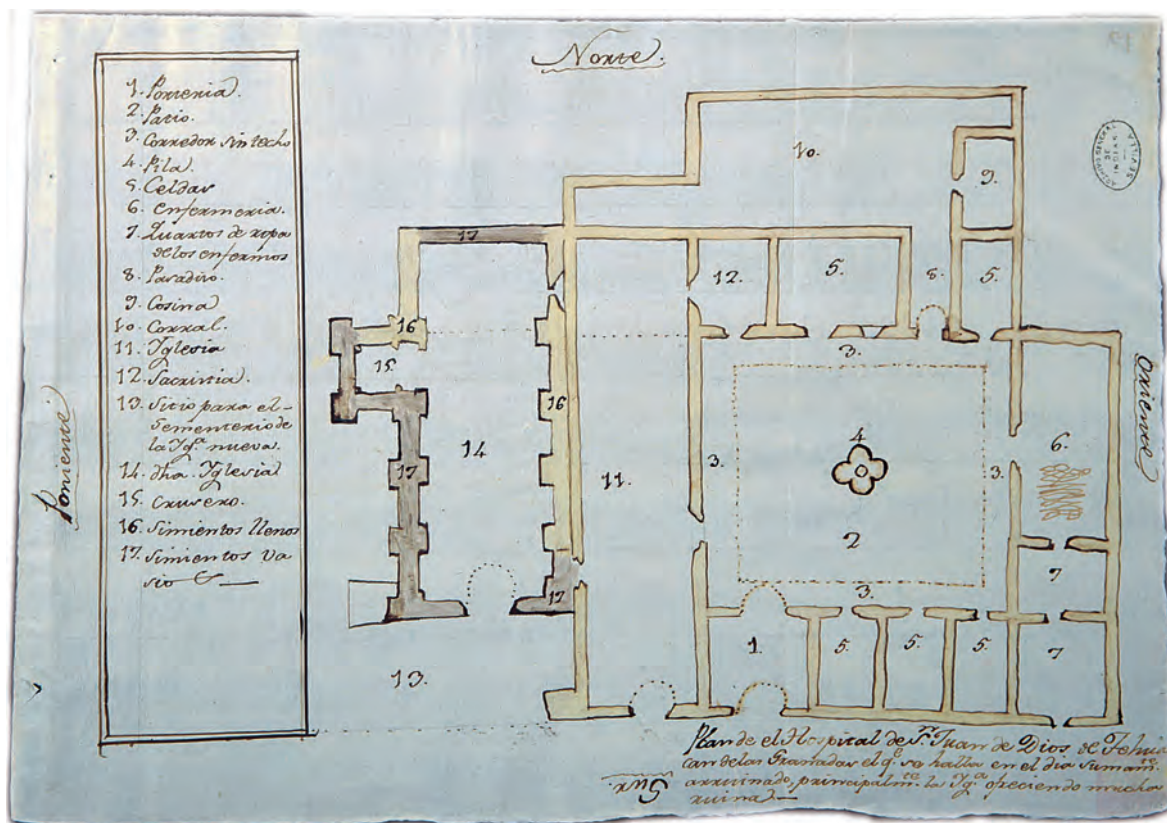 Norte.
1. Porteria.
2 Patio.
3. Corredor sin techo
4 Pila.
5. Celdas
6. Enfermeria.
7. Quartos de ropa
de los enfermos
8. Pasadiso.
9. Cosina
10. Corral.
11. Yglesia
12. Sacristia.
13. Sitio para el-
Sementerio de
la Yga. nueva.
14. dha. Yglesia
15. Crusero.
16. Simientos llenos
17. Simientos va
sio
Poniente
Oriente
ARCHIVO GENERAL
DE
INDIAS
SEVILLA
10.
9.
17
12.
5.
8.
5.
16
15.
3.
16
14
4
6.
3.
3.
17
11.
2
7
3.
17
1.
5.
5.
5.
7
13.
Plan de el Hospital de Sn. Juan de Dios de Tehua
can de las Granadas el qe. se halla en el dia sumamte.
arruinado, principalmte. la Yga. ofreciendo mucha
ruina
Sur.